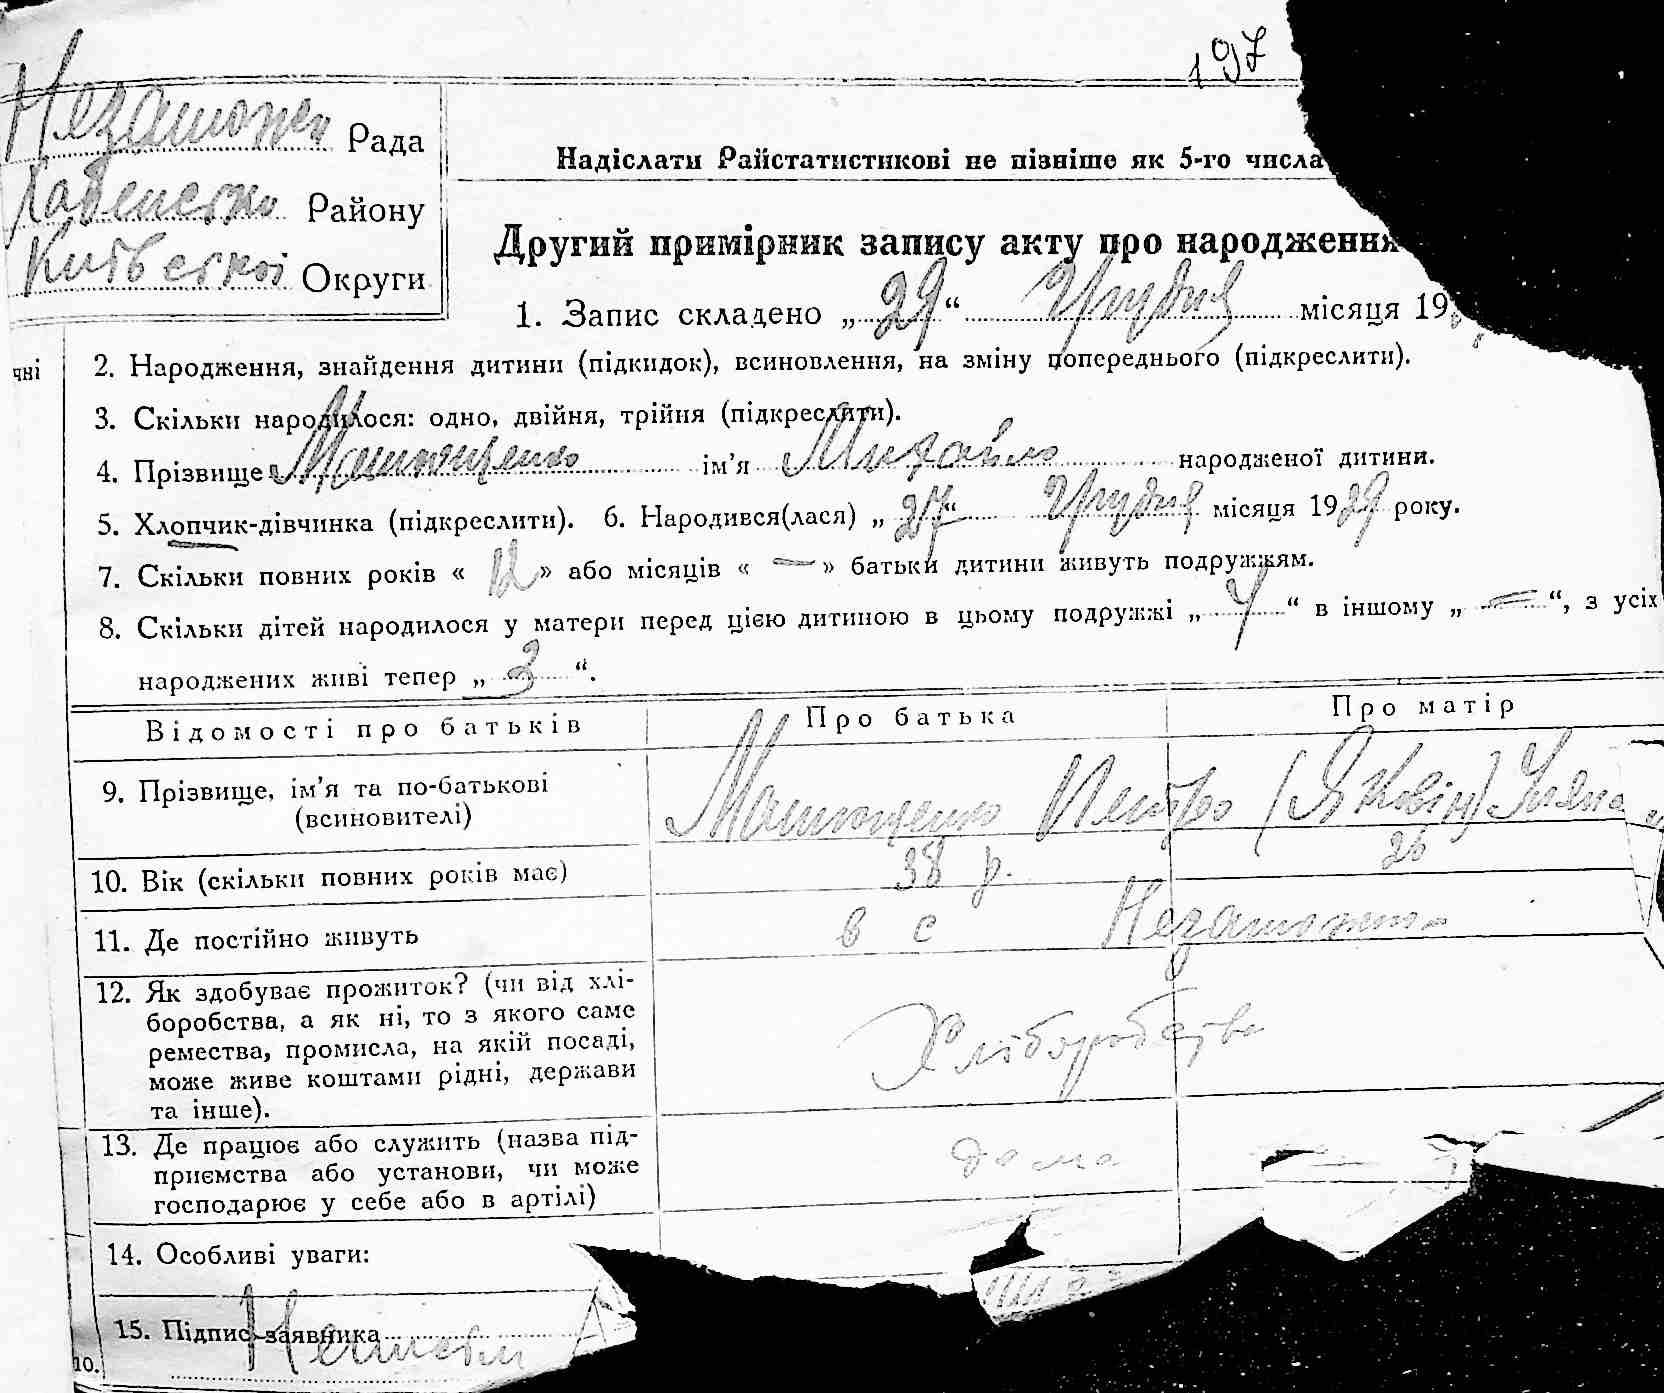 197
Незаможн Рада
Надіслати Райстатистикові не пізніше як 5-го числа
Хабенсько Району
Київської Округи
Другий примірник запису акту про народження
1. Запис складено „29“ Грудня місяця 19
чні
2. Народження, знайдення дитини (підкидок), всиновлення, на зміну попереднього (підкреслити).
3. Скільки народилося: одно, двійня, трійня (підкреслити).
4. Прізвище ім’я Михайло народженої дитини.
5. Хлопчик-дівчинка (підкреслити). 6. Народився(лася) „27“ Грудня місяця 1929 року.
7. Скільки повних років « 12 » або місяців « — » батьки дитини живуть подружжям.
8. Скільки дітей народилося у матери перед цією дитиною в цьому подружжі „ 4 “ в іншому „ — “, з усіх
народжених живі тепер „ 3 “.
Відомості про батьків Про батька Про матір
9. Прізвище, ім’я та по-батькові
(всиновителі)
Петро (Яковін) Уляна
10. Вік (скільки повних років має) 38 р. 36
11. Де постійно живуть в с Незаможн
12. Як здобуває прожиток? (чи від хлі-
боробства, а як ні, то з якого саме
ремества, промисла, на якій посаді,
може живе коштами рідні, держави
та інше).
Хліборобство
13. Де працює або служить (назва під-
приємства або установи, чи може
господарює у себе або в артілі)
дома —
14. Особливі уваги:
15. Підпис заявника
10.